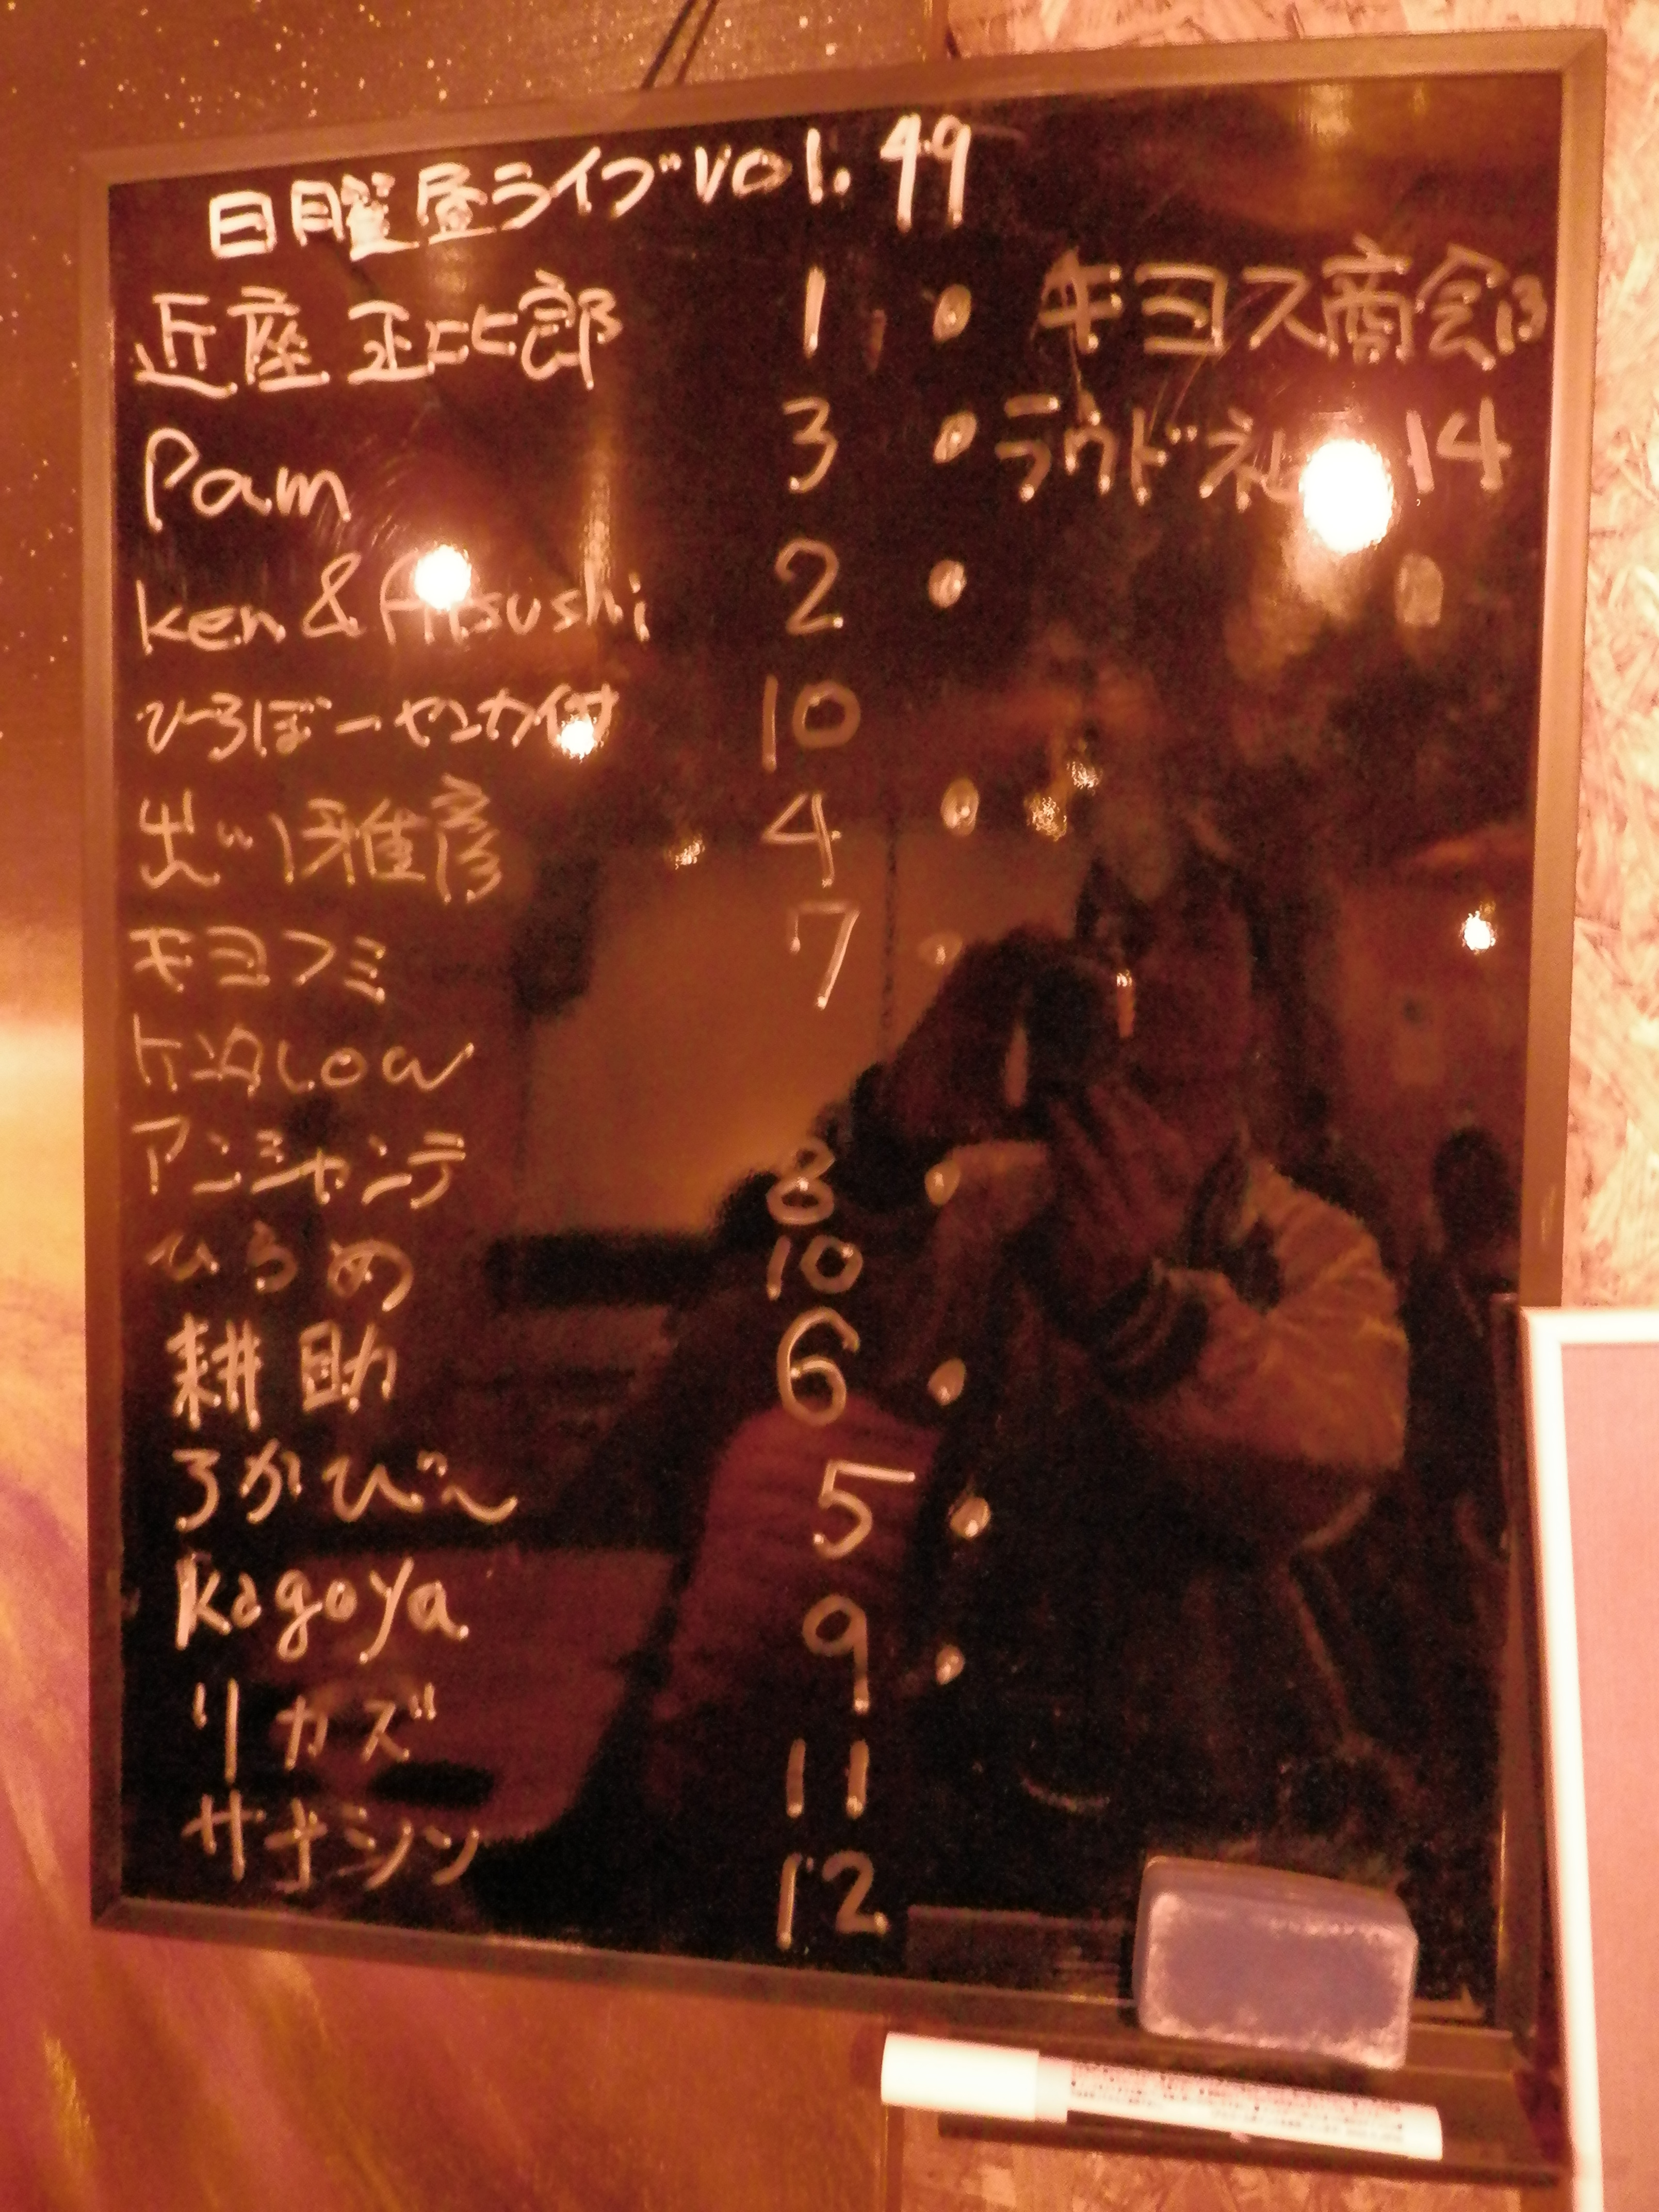 日曜昼ライブ vol. 49
近座 正比郎 1 ●
キヨス商会 13
Pam 3 ●
ラウド社 14
Ken & Atsushi 2 ●
ひろぼーやエカ付 10
出 雅彦 4 ●
キヨフミ 7 ●
LOW
アンシャンテ 8 ●
ひらめ 10
耕助 6 ●
ろかび～ 5 ●
Kagoya 9 ●
リカズ 11
サナシン 12